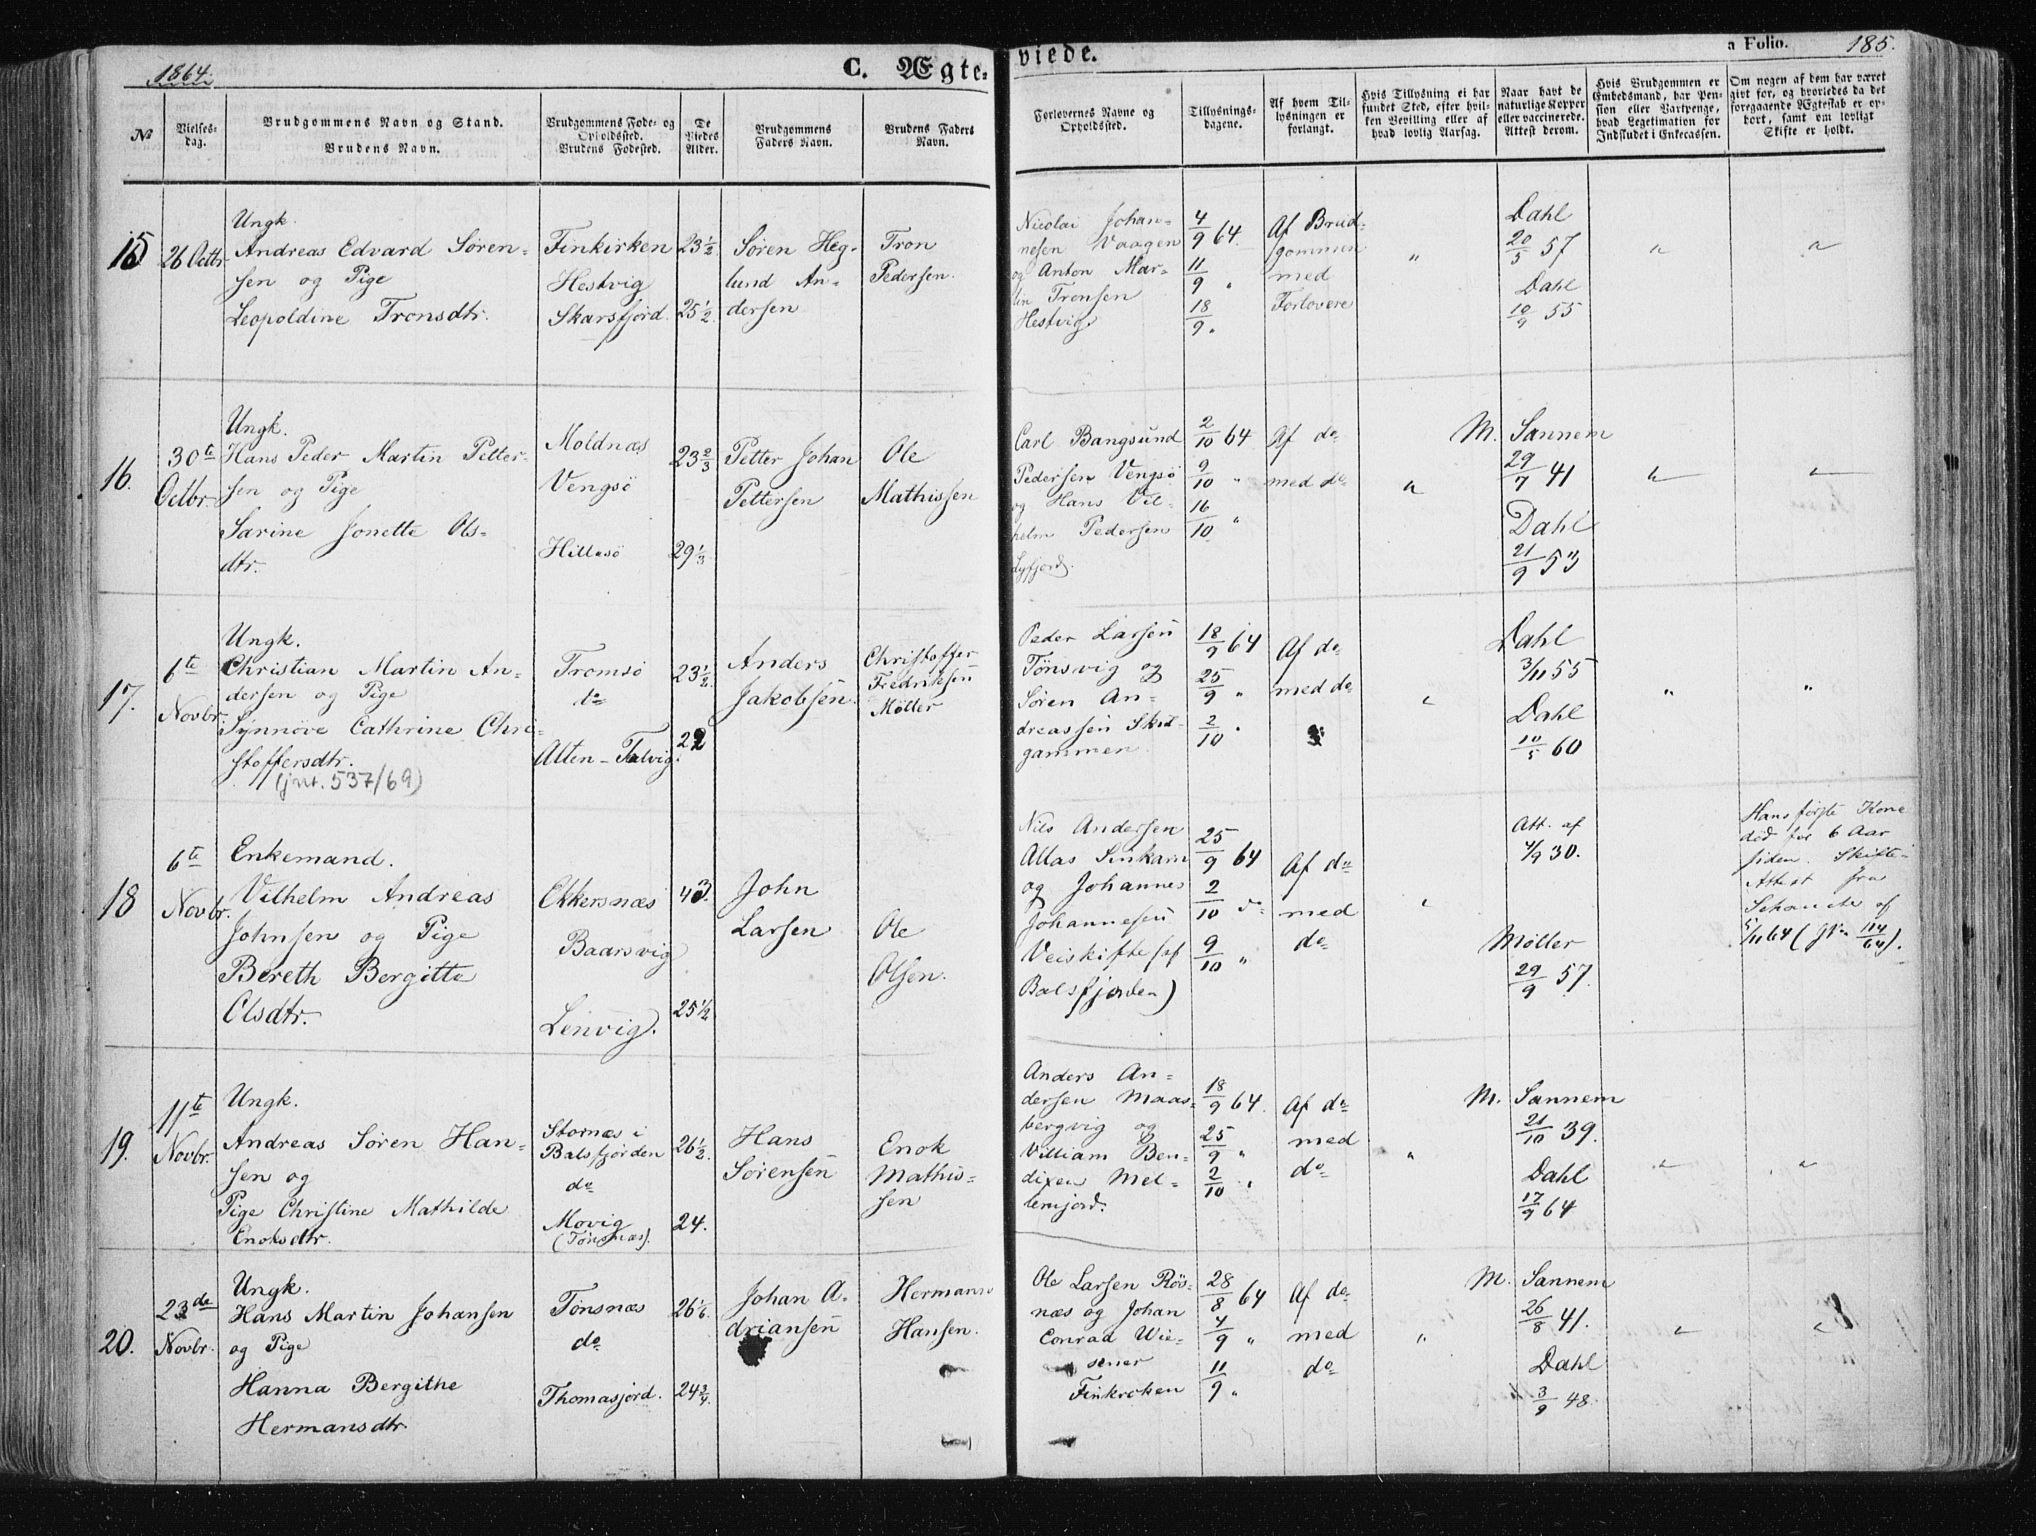 1864.
C. Ægte-
viede.
a Folio. 185.
No
Vielses-
dag.
Brudgommens Navn og Stand.
Brudens Navn.
Brudgommens Føde- og
Opholdssted.
Brudens Fødested.
De
Viedes
Alder.
Brudgommens
Faders Navn.
Brudens Faders
Navn.
Forlovernes Navne og
Opholdssted.
Tillysnings-
dagene.
Af hvem Til-
lysningen er
forlangt.
Hvis Tillysning ei har
fundet Sted, efter hvil-
ken Bevilling eller af
hvad lovlig Aarsag.
Naar havt de
naturlige Kopper
eller vaccinerede.
Attest derom.
Hvis Brudgommen er
Embedsmand, har Pen-
sion eller Vartpenge,
hvad Legitimation for
Indskudet i Enkecassen.
Om nogen af dem har været
gift før, og hvorledes da det
foregaaende Ægteskab er op-
hørt, samt om lovligt
Skifte er holdt.
15
26 Octbr.
Ungk.
Andreas Edvard Søren-
sen og Pige
Leopoldine Tronsdtr.
Finkirken
Hestvig
Skarsfjord
23 1/2
25 1/2
Søren Heg-
lund An-
dersen
Tron
Pedersen.
Nicolai Johan-
nesen Vaagen
og Anton Mar-
tin Tronsen
Hestvig
4/9 64.
11/9 "
18/9 "
Af Brud-
gommen
med
Forlovere
"
Dahl
20/5 57
Dahl
10/9 55
"
"
16.
30te
Octbr.
Ungk.
Hans Peder Martin Petter-
sen og Pige
Sarine Jonette Ols-
dtr.
Moldnæs
Vengsö
Hillesö
23 2/3
29 1/3
Petter Johan
Pettersen
Ole
Mathissen
Carl Bangsund
Pedersen Vengsö
og Hans Vil-
helm Pedersen
Lyfjord.
2/10 64
9/10 "
16/10 "
Af do
med do
"
M. Sannem
29/7 41
Dahl
21/9 53
"
"
17.
6te
Novbr.
Ungk.
Christian Martin An-
dersen og Pige
Synnöve Cathrine Chri-
stoffersdtr.
(jnr. 537/69)
Tromsö
do
Alten - Talvig.
23 1/2
22
Anders
Jakobsen
Christoffer
Fredriksen
Möller
Peder Larsen
Tönsvig og
Sören An-
dreassen Skit-
gammen
18/9 64
25/9 "
2/10 "
Af do
med do
"
Dahl
3/11 55
Dahl
10/5 60
"
"
18
6te
Novbr.
Enkemand.
Vilhelm Andreas
Johnsen og Pige
Bereth Bergitte
Olsdtr.
Ekkersnæs
Baarsvig
Lenvig.
43.
25 1/4
John
Larsen
Ole
Olsen.
Nils Andersen
og Johannes
Johannesen
Balsfjorden)
25/9 64
2/10
9/10 "
Af do
med
do
"
Att. af
4/9 30.
Möller
29/9 57.
Hans förste Kone
död for 6 Aar
siden. Skifte-
Attest fra
af
5/11 64 (Jr. 114/64).
19.
11te
Novbr.
Ungk.
Andreas Sören Han-
sen og
Pige Christine Mathilde
Enoksdtr.
Stornæs i
Balsfjorden
do
Movig
(Tönsnæs).
26 1/2.
24.
Hans
Sörensen
Enok
Mathis-
sen
Anders An-
dersen Maas-
bergvig og
William Ben-
dixen Mel-
lemjord.
18/9 64.
25/9 "
2/10 "
Af do
med
do
"
M. Sannem
21/10 39.
Dahl
17/9 64
"
"
20.
23de
Novbr.
Ungk.
Hans Martin Johansen
og Pige
Hanna Bergithe
Hermansdtr.
Tönsnæs
do
Thomasjord.
26 1/6.
24 3/4.
Johan A-
driansen
Herman
Hansen.
Ole Larsen Rös-
næs og Johan
Conrad Wie-
sener
Finkroken
28/8 64
4/9 "
11/9 "
Af do
med
do
"
M. Sannem
26/8 41.
Dahl
3/9 48.
"
"